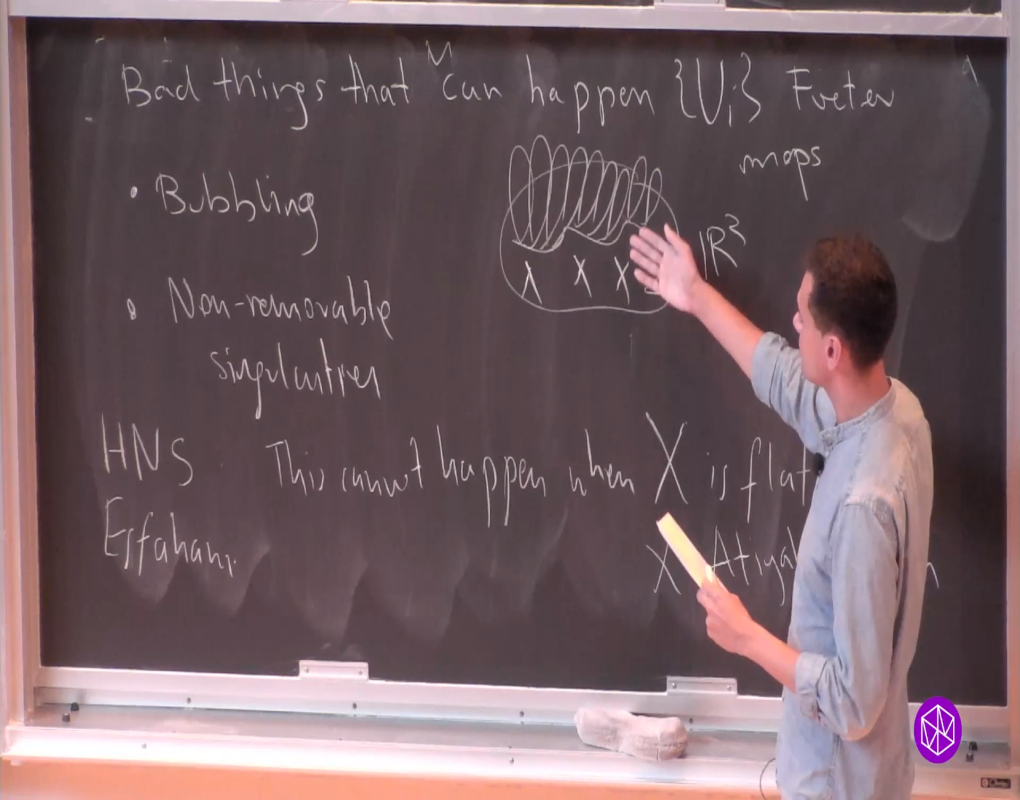 Bad things that can happen {Ui} Fueter
maps
M
• Bubbling
X X X
ℝ³
• Non-removable
singularities
HNS This cannot happen when X is flat
Esfahani
X Atiyah